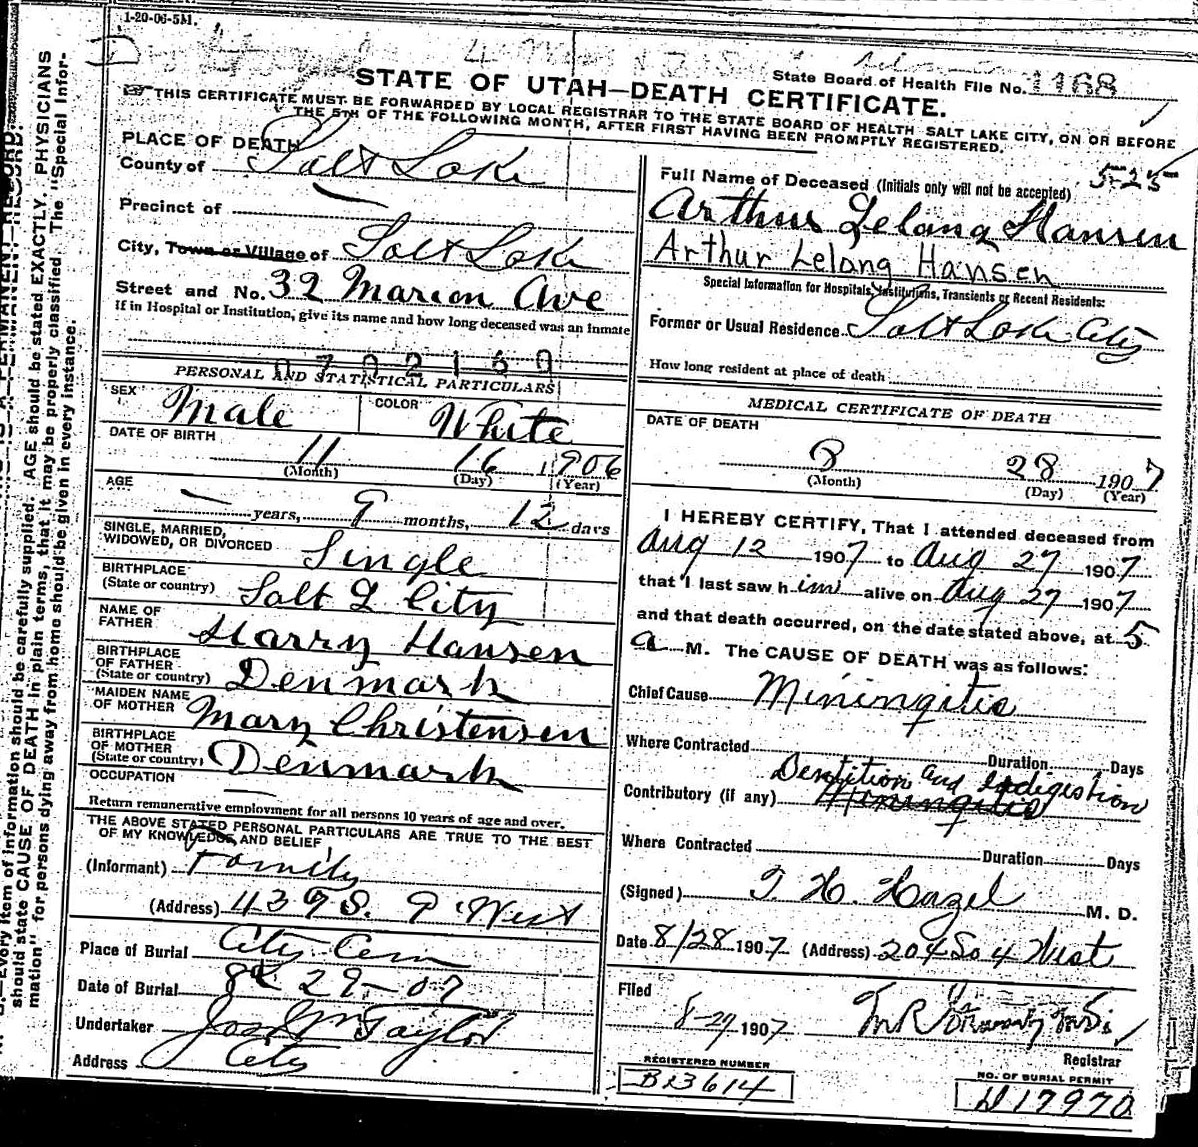 1-20-06-5M.
State Board of Health File No. 1168
STATE OF UTAH—DEATH CERTIFICATE.
THIS CERTIFICATE MUST BE FORWARDED BY LOCAL REGISTRAR TO THE STATE BOARD OF HEALTH SALT LAKE CITY, ON OR BEFORE
THE 5TH OF THE FOLLOWING MONTH, AFTER FIRST HAVING BEEN PROMPTLY REGISTERED.
PLACE OF DEATH
County of Salt Lake
Precinct of
City, Town or Village of Salt Lake
Street and No. 32 Marion Ave
if in Hospital or Institution, give its name and how long deceased was an inmate
0702160
PERSONAL AND STATISTICAL PARTICULARS
SEX Male COLOR White
DATE OF BIRTH
11 16 1906
(Month) (Day) (Year)
AGE
— years, 9 months, 12 days
SINGLE, MARRIED,
WIDOWED, OR DIVORCED Single
BIRTHPLACE
(State or country) Salt L City
NAME OF
FATHER Harry Hansen
BIRTHPLACE
OF FATHER
(State or country) Denmark
MAIDEN NAME
OF MOTHER Mary Christensen
BIRTHPLACE
OF MOTHER
(State or country) Denmark
OCCUPATION —
Return remunerative employment for all persons 10 years of age and over.
THE ABOVE STATED PERSONAL PARTICULARS ARE TRUE TO THE BEST
OF MY KNOWLEDGE AND BELIEF
(Informant) Family
(Address) 439 S. 9 West
Place of Burial City Cem
Date of Burial 8 29-07
Undertaker Jos Wm Taylor
Address City
525
Full Name of Deceased (Initials only will not be accepted)
Arthur Lelang Hansen
Arthur Lelang Hansen
Special Information for Hospitals, Institutions, Transients or Recent Residents:
Former or Usual Residence Salt Lake City
How long resident at place of death
MEDICAL CERTIFICATE OF DEATH
DATE OF DEATH
8 28 1907
(Month) (Day) (Year)
I HEREBY CERTIFY, That I attended deceased from
Aug 12 1907 to Aug 27 1907
that I last saw him alive on Aug 27 1907
and that death occurred, on the date stated above, at 5
a M. The CAUSE OF DEATH was as follows:
Chief Cause Miningitis
Where Contracted Duration Days
Dentition and Indigestion
Contributory (if any) Miningitis
Where Contracted Duration Days
(Signed) T. H. Hazel M. D.
Date 8/28 1907 (Address) 204 So 4 West
Filed
8-29 1907
Registrar
REGISTERED NUMBER
B23614
NO. OF BURIAL PERMIT
D17970
Every item of information should be carefully supplied. AGE should be stated EXACTLY. PHYSICIANS
should state CAUSE OF DEATH in plain terms, that it may be properly classified. The "Special Infor-
mation" for persons dying away from home should be given in every instance.